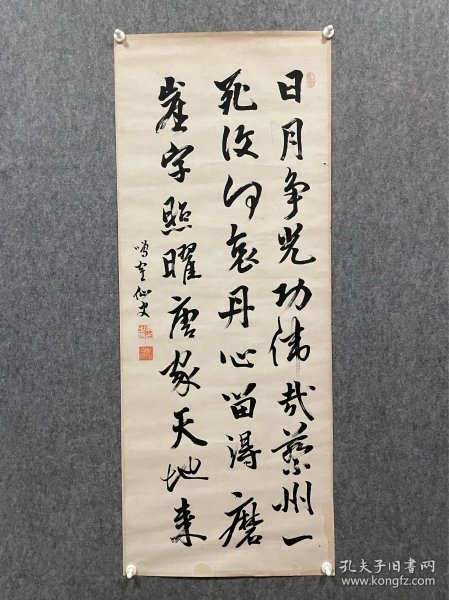 日月争光功偉哉蔡州一
死後何哀丹心留得磨
崖字照曜唐家天地来
仙史
孔夫子旧书网
www.kongfz.com